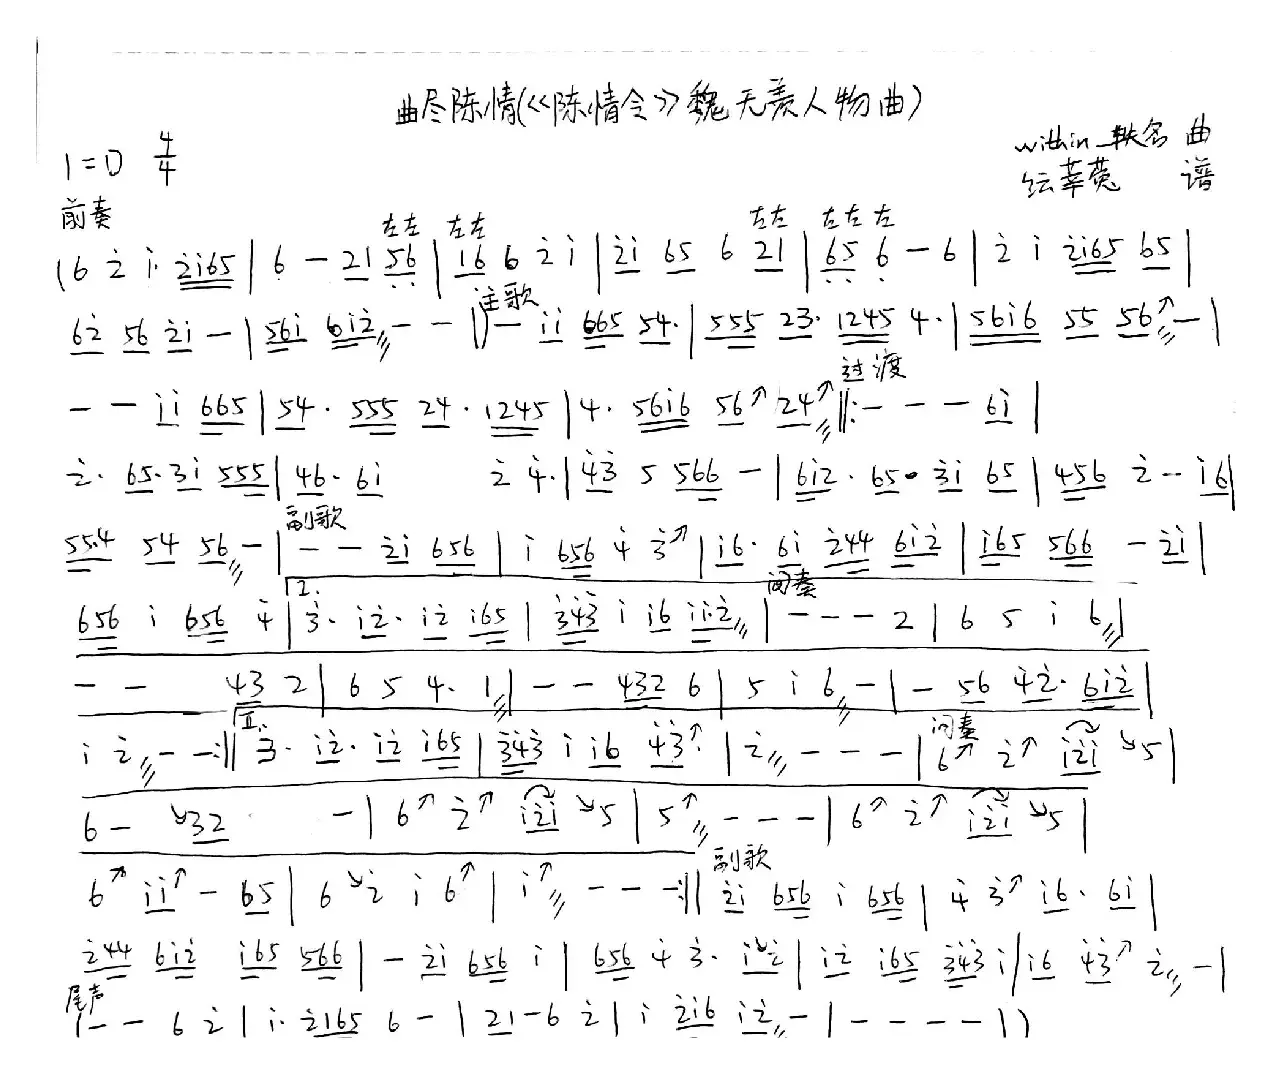 曲尽陈情(《陈情令》魏无羡人物曲)
within_轶名 曲
1=D 4/4
谱
前奏
左左 左左 左左 左左左
(6 2̇ 1̇· 2̇1̇65 | 6 - 21 5̣6̣ | 16̣ 6 2̇ 1̇ | 2̇1̇ 65 6 21 | 6̣5̣ 6̣ - 6 | 2̇ 1̇ 2̇1̇65 65 |
主歌
62̇ 56 2̇1̇ - | 561̇ 61̇2̇ - - ‖) - 1̇1̇ 665 54· | 555 23· 1245 4· | 561̇6 55 56↗ - |
过渡
- - 1̇1̇ 665 | 54· 555 24· 1245 | 4· 561̇6 56↗ 24↗ ‖: - - - 61̇ |
2̇· 65· 31̇ 555 | 46· 61̇ 2̇ 4̇· | 4̇3̇ 5 566 - | 61̇2̇· 65· 3̇1̇ 65 | 456 2̇ - - 1̇6 |
副歌
55·4 54 56 - | - - 2̇1̇ 656 | 1̇ 656 4̇ 3̇↗ | 1̇6· 61̇ 2̇44 61̇2̇ | 1̇65 566 - 2̇1̇ |
I. 间奏
656 1̇ 656 4̇ | 3̇· 1̇2̇· 1̇2̇ 1̇65 | 3̇4̇3̇ 1̇ 1̇6 1̇1̇·2̇ | - - - 2 | 6 5 1̇ 6 |
- - 43 2 | 6 5 4· 1 | - - 432 6 | 5 1̇ 6 - | - 56 4̇2̇· 61̇2̇ |
II. 间奏
1̇ 2̇ - - :‖ 3̇· 1̇2̇· 1̇2̇ 1̇65 | 3̇4̇3̇ 1̇ 1̇6 4̇3̇↗ | 2̇ - - - | 6↗ 2̇↗ 1̇2̇1̇ ↘5 |
6 - ↘32 - | 6↗ 2̇↗ 1̇2̇1̇ ↘5 | 5↗ - - - | 6↗ 2̇↗ 1̇2̇1̇ ↘5 |
副歌
6↗ 1̇1̇↗ - 65 | 6 ↘2̇ 1̇ 6↗ | 1̇↗ - - - :‖ 2̇1̇ 656 1̇ 656 | 4̇ 3̇↗ 1̇6· 61̇ |
2̇44 61̇2̇ 1̇65 566 | - 2̇1̇ 656 1̇ | 656 4̇ 3̇· 1̇↘2̇ | 1̇2̇ 1̇65 3̇4̇3̇ 1̇ | 1̇6 4̇3̇↗ 2̇ - |
尾声
(- - 6 2̇ | 1̇· 2̇1̇65 6 - | 21 - 6 2̇ | 1̇ 2̇1̇6 1̇2̇ - | - - - - |)